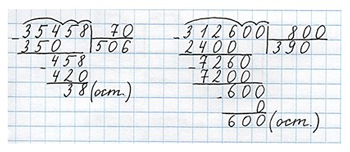 35458 | 70
- 350 | 506
- 458
420
38 (ост.)
312600 | 800
- 2400 | 390
- 7260
7200
- 600
0
600 (ост.)